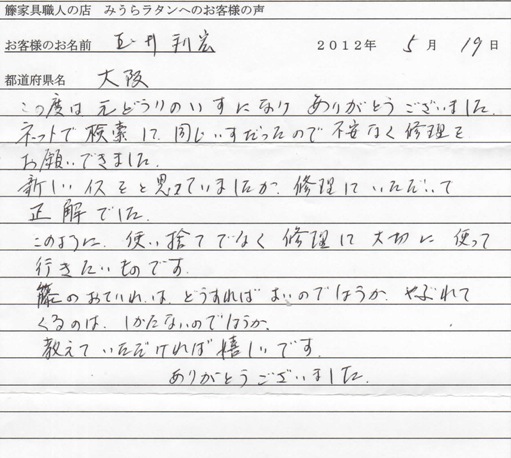 籐家具職人の店　みうらラタンへのお客様の声
お客様のお名前　玉井利宏　2012年　5月　19日
都道府県名　大阪
この度は元どうりのいすになり ありがとうございました。
ネットで検索して、同じいすだったので不安なく修理を
お願いできました。
新しいイスをと思っていましたが、修理していただいて
正解でした。
このように、使い捨てでなく修理して大切に使って
行きたいものです。
籐のおていれは、どうすればよいのでしょうか、やぶれて
くるのは、しかたないのでしょうか。
教えていただければ嬉しいです。
ありがとうございました。